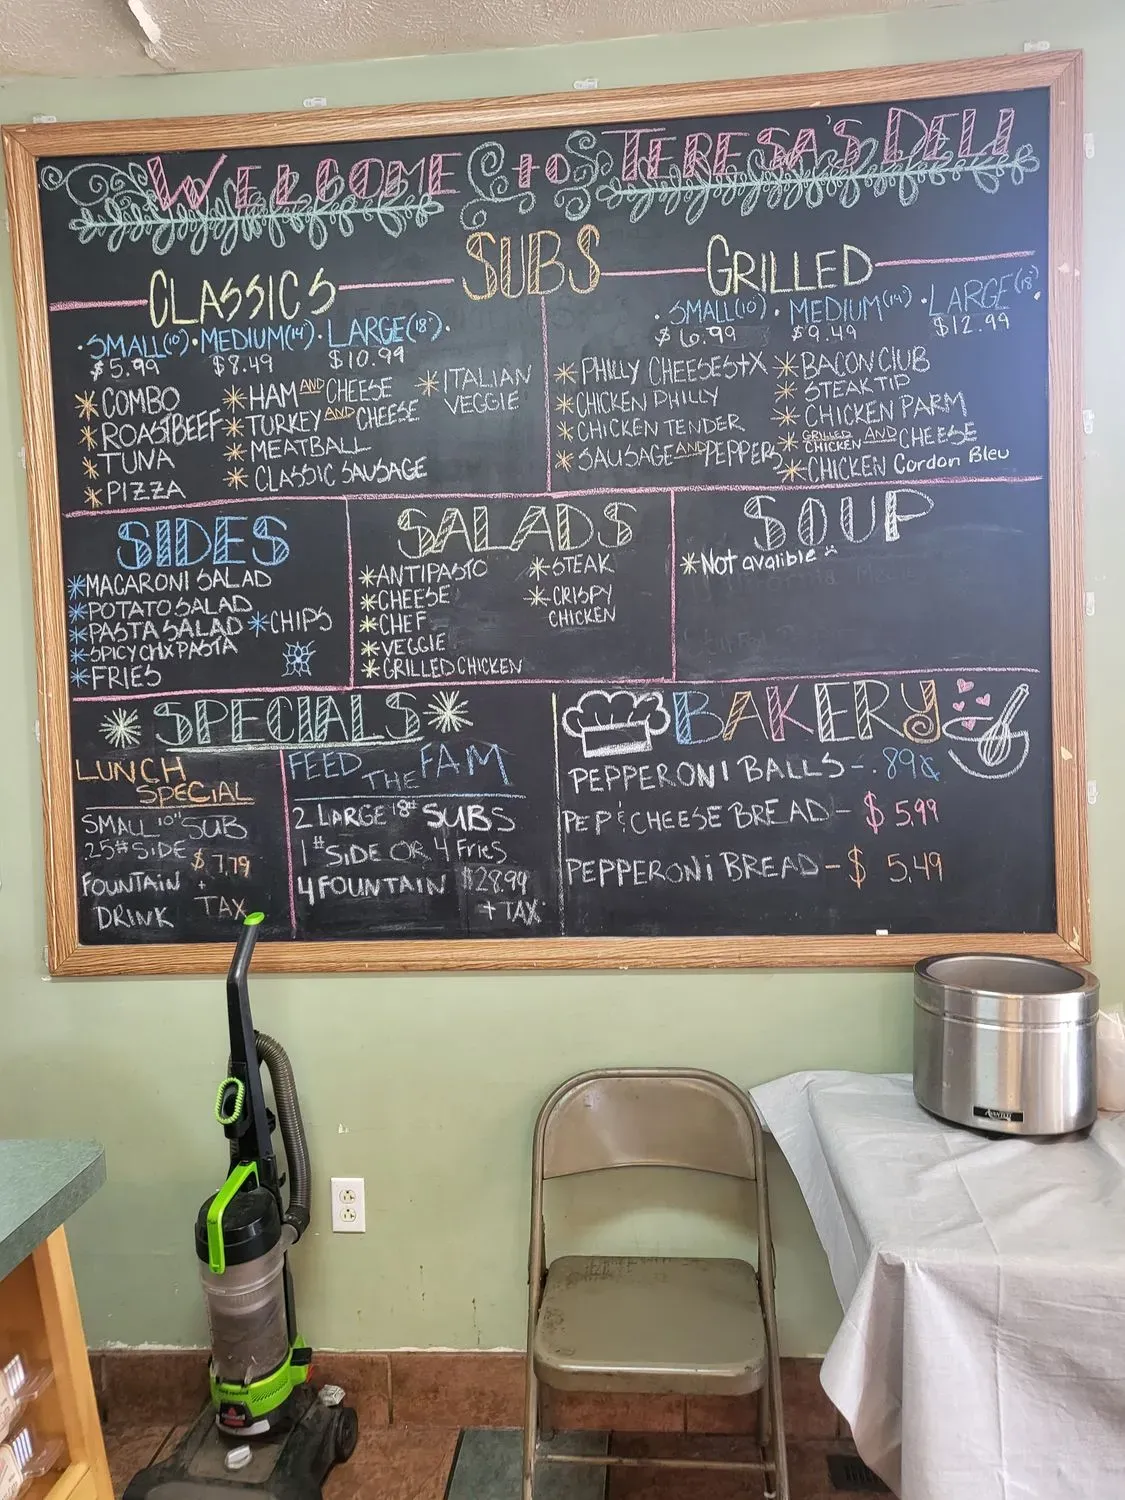 WELCOME to TERESA'S DELI
SUBS
CLASSICS
• SMALL(10") • MEDIUM(14") • LARGE(18") •
$5.99 $8.49 $10.99
* COMBO
* ROASTBEEF
* TUNA
* PIZZA
* HAM AND CHEESE
* TURKEY AND CHEESE
* MEATBALL
* CLASSIC SAUSAGE
* ITALIAN
VEGGIE
GRILLED
• SMALL(10") • MEDIUM(14") • LARGE(18") •
$6.99 $9.49 $12.99
* PHILLY CHEESESTX
* CHICKEN PHILLY
* CHICKEN TENDER
* SAUSAGE AND PEPPERS
* BACON CLUB
* STEAK TIP
* CHICKEN PARM
* GRILLED CHICKEN AND CHEESE
* CHICKEN Cordon Bleu
SIDES
* MACARONI SALAD
* POTATO SALAD
* PASTA SALAD
* SPICY CHX PASTA
* FRIES
* CHIPS
SALADS
* ANTIPASTO
* CHEESE
* CHEF
* VEGGIE
* GRILLED CHICKEN
* STEAK
* CRISPY
CHICKEN
SOUP
* Not availible
SPECIALS
LUNCH
SPECIAL
SMALL 10" SUB
.25# SIDE
FOUNTAIN
DRINK
$7.79
+
TAX
FEED THE FAM
2 LARGE 18" SUBS
1# SIDE OR 4 Fries
4 FOUNTAIN $28.99
+ TAX
BAKERY
PEPPERONI BALLS - .89¢
PEP & CHEESE BREAD - $5.99
PEPPERONI BREAD - $5.49